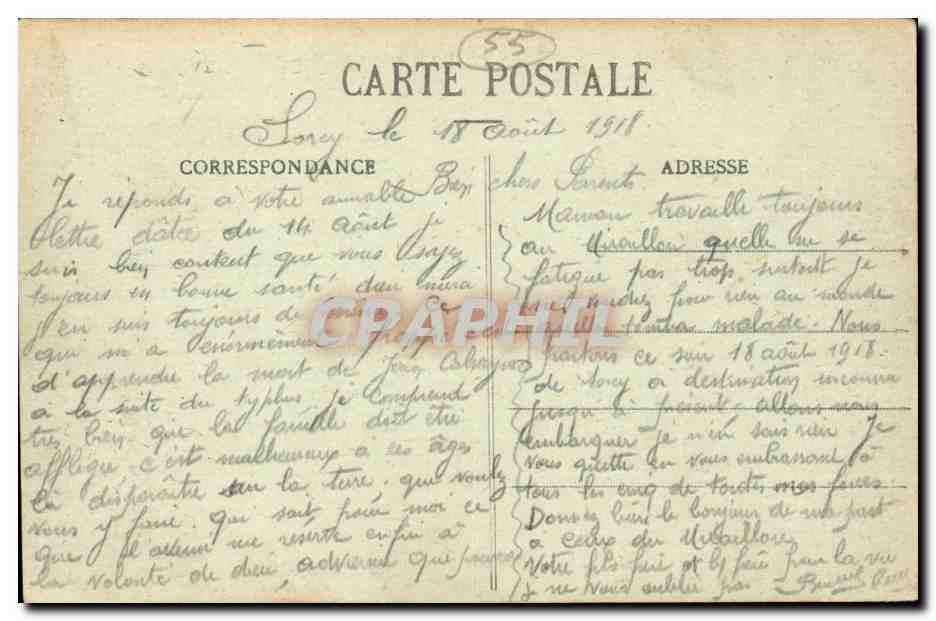 55
CARTE POSTALE
Sorcy le 18 août 1918.
CORRESPONDANCE
ADRESSE
Bien chers Parents
Je réponds à votre aimable
lettre dâtée du 14 Août je
suis bien content que vous soyez
toujours en bonne santé dieu merci
j'en suis toujours de même ce
qui m'a enormément frappé c'est
d'apprendre la mort de
à la suite du typhus je comprend
très bien que la famille doit être
affligée c'est malheureux à ces âges
là disparaître sur la terre. que voulez
vous y faire. qui sait pour moi ce
que l'avenir me réserve enfin à
la volonté de dieu advienne que pourra
Maman travaille toujours
au Miraillou quelle ne se
fatigue pas trop surtout je
ne voudrez pour rien au monde
tomba malade. Nous
partons ce soir 18 août 1918.
de Sorcy à destination inconnu
jusqu'à présent. allons nous
embarquer je n'en sais rien. Je
vous quitte en vous embrassant à
tous les cinq de toutes mes forces.
Donnez bien le bonjour de ma part
à ceux du Miraillou
Votre fils fière et frère pour la vie
je ne vous oublie pas
CPAPHIL